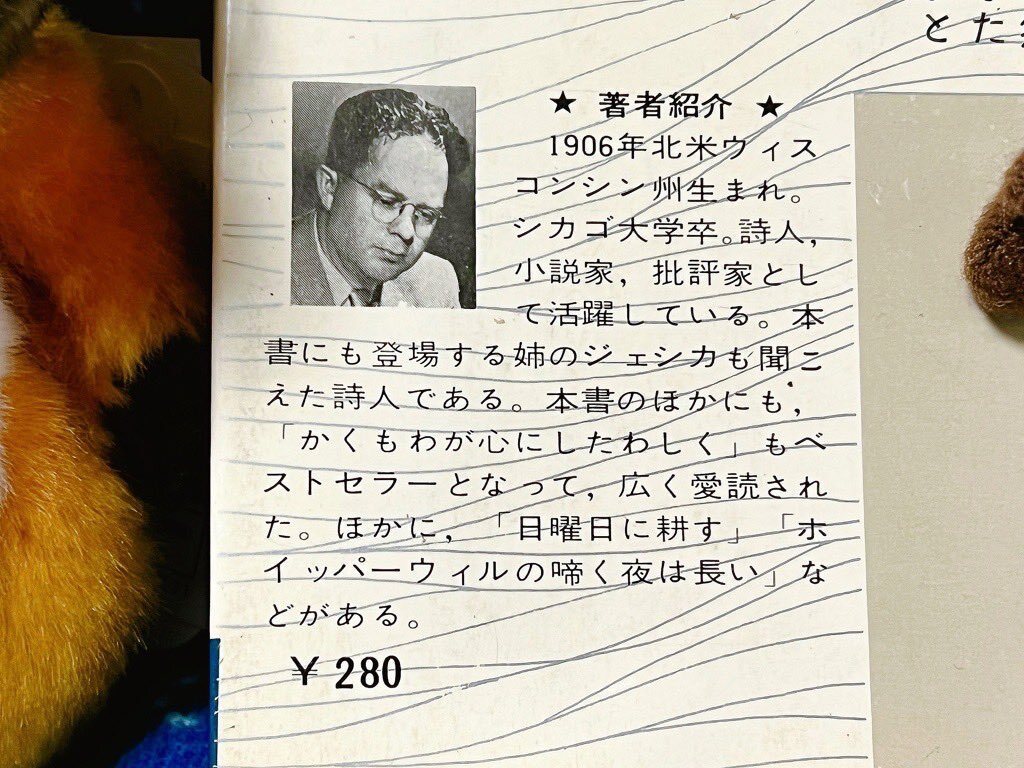 とた
★ 著者紹介 ★
1906年北米ウィス
コンシン州生まれ。
シカゴ大学卒。詩人,
小説家，批評家とし
て活躍している。本
書にも登場する姉のジェシカも聞こ
えた詩人である。本書のほかにも，
「かくもわが心にしたわしく」もベ
ストセラーとなって，広く愛読され
た。ほかに，「日曜日に耕す」「ホ
イッパーウィルの啼く夜は長い」な
どがある。
￥280